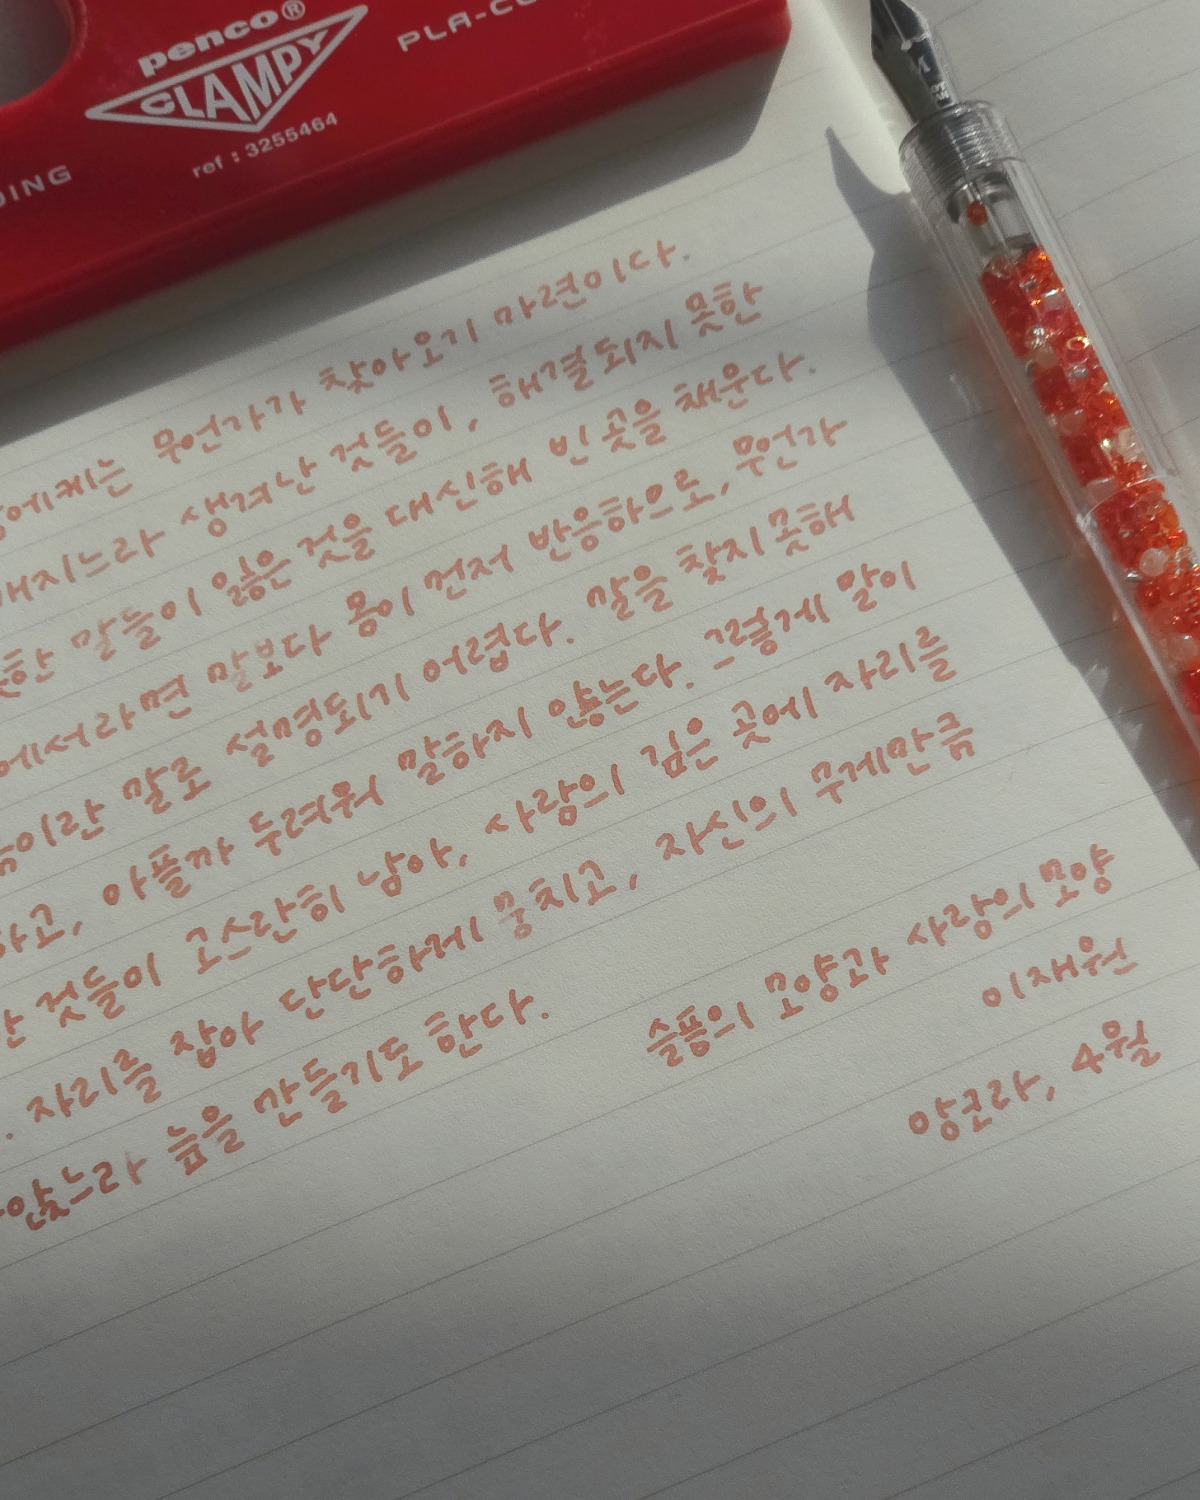 penco®
CLAMPY
ref : 3255464
무언가가 찾아오기 마련이다.
생겨난 것들이, 해결되지 못한
말들이 잃은 것을 대신해 빈 곳을 채운다.
말보다 몸이 먼저 반응하므로, 무언가
말로 설명되기 어렵다. 말을 찾지 못해
아플까 두려워 말하지 않는다. 그렇게 말이
것들이 고스란히 남아, 사랑의 깊은 곳에 자리를
자리를 잡아 단단하게 뭉치고, 자신의 무게만큼
늪을 만들기도 한다.
슬픔의 모양과 사랑의 모양
이재원
앙코라, 4월